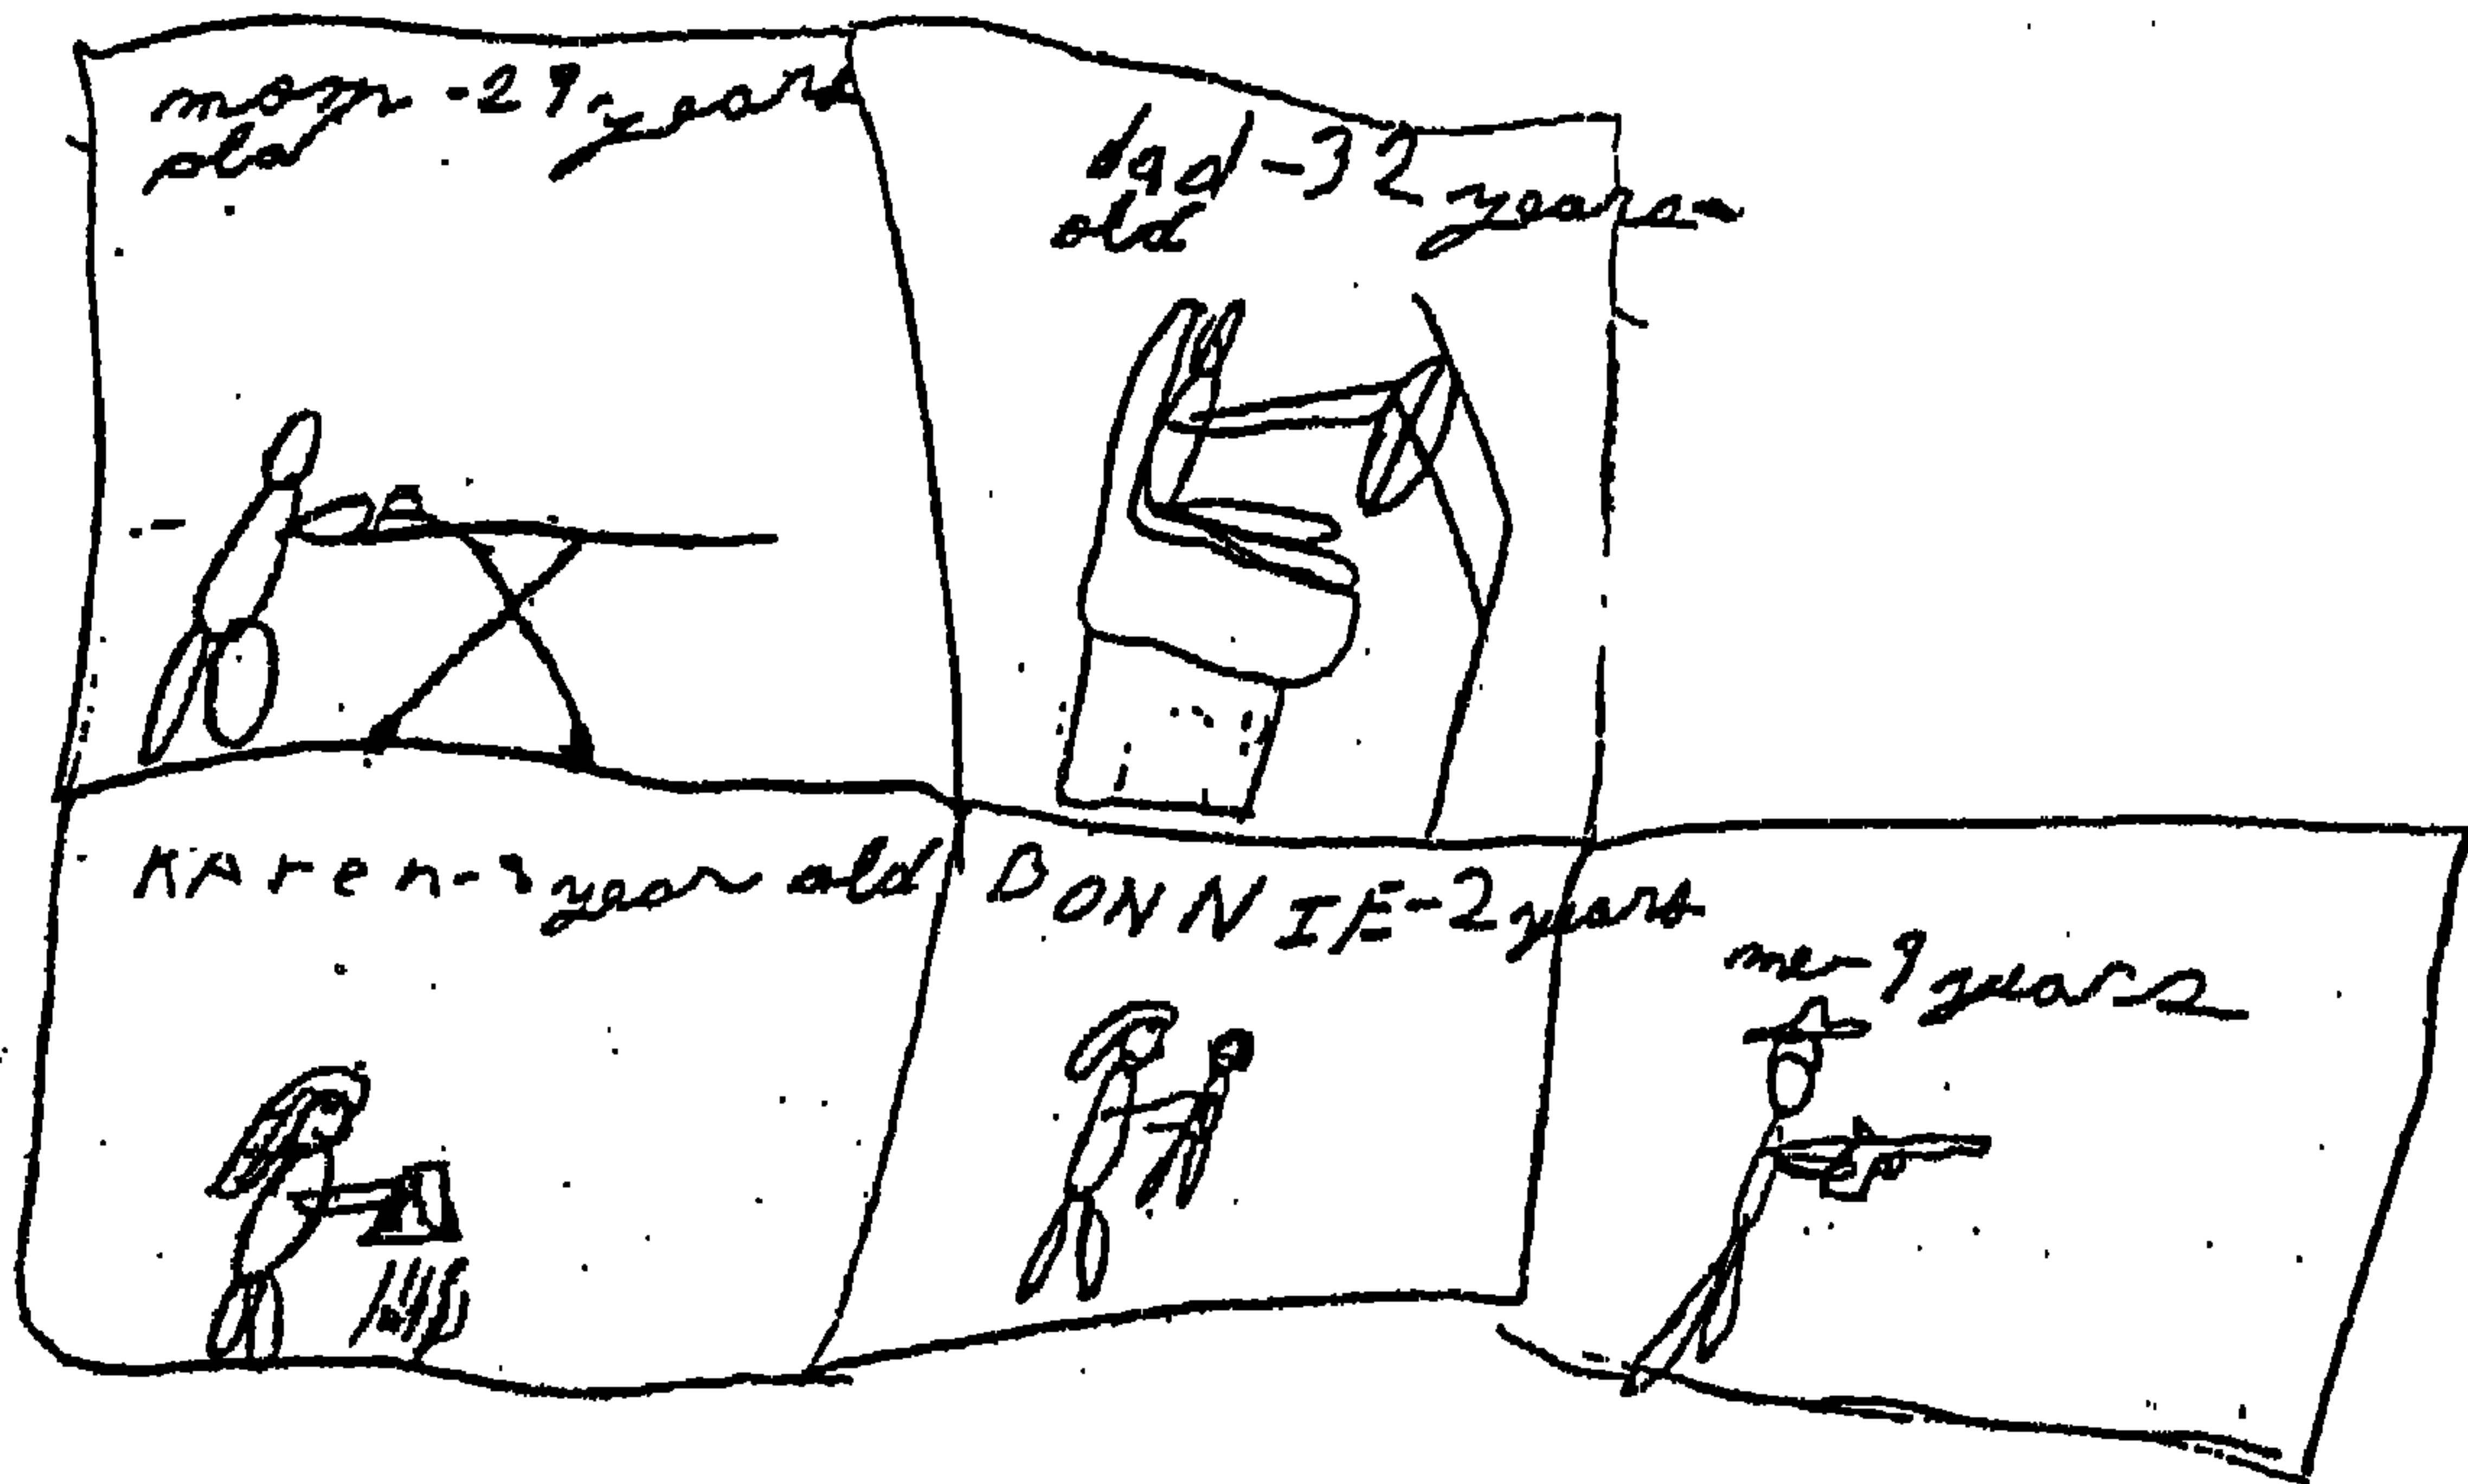 mom - 29 years
old
dad - 32 years
old
KAren - 8 year old
DONNIE - 2 years
me - 9 years